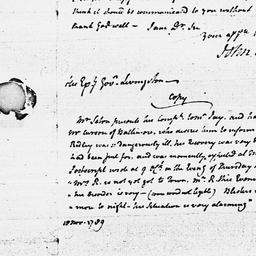 think it should be communicated to you without
thank God well — I am Dr. Sir
Your
John
His Exy. Govr. Livingston
Copy
Mr. presents his Compts. to Mr. Jay, and has
Mr. of Baltimore, who desires him to inform
Ridley was dangerously ill, his recovery was very
had been put for, and was momently expected at
Postscript wrote at 9 in the Evening of Thursday
"Mr. R. is not yet got to Town. Mr. R. this Even
his disorder is very — (one word not legible) Blisters
more to night — his situation is very alarming"
18 Nov. 1789